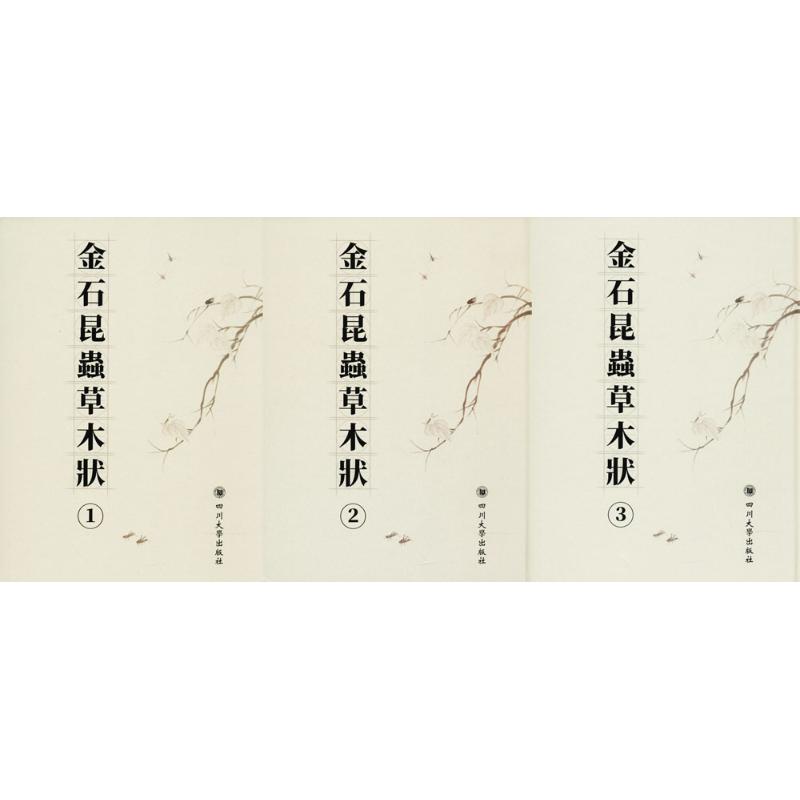 金石昆蟲草木狀
①
四川大學出版社
金石昆蟲草木狀
②
四川大學出版社
金石昆蟲草木狀
③
四川大學出版社